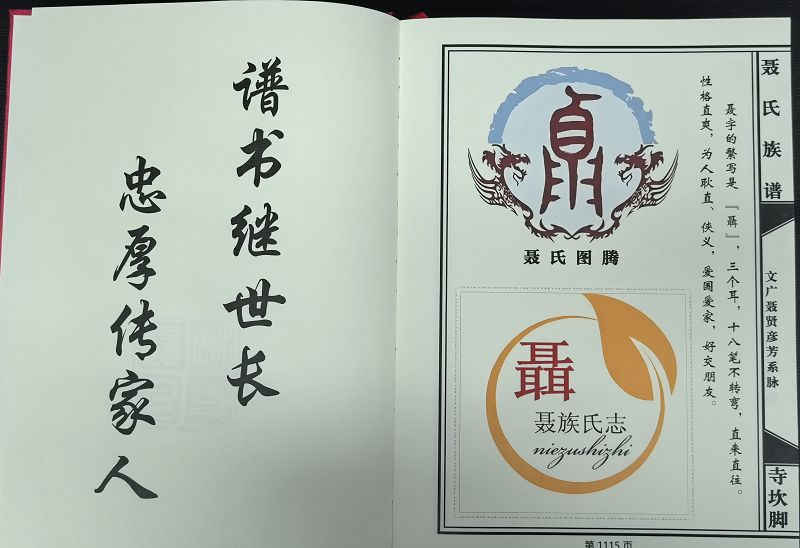 谱书继世长
忠厚传家人
聂氏图腾
聶
聂族氏志
niezushizhi
聂字的繁写是『聶』，三个耳，十八笔不转弯，直来直往。
性格直爽，为人耿直、侠义，爱国爱家，好交朋友。
聂氏族谱
文广聂贤彦芳系脉
寺坎脚
第 1115 页